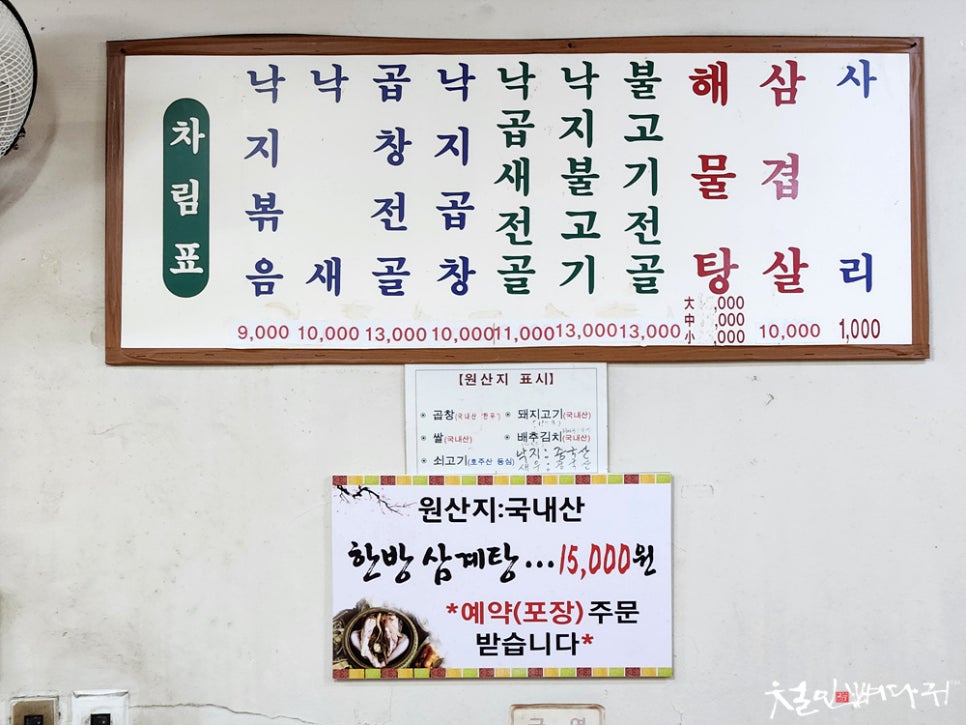 차림표
낙지볶음 9,000
낙새 10,000
곱창전골 13,000
낙지곱창 10,000
낙곱새전골 11,000
낙지불고기 13,000
불고기전골 13,000
해물탕 大 ,000
中 ,000
小 ,000
삼겹살 10,000
사리 1,000
【원산지 표시】
곱창(국내산 '한우') 돼지고기(국내산)
쌀(국내산) 배추김치(국내산)
쇠고기(호주산 등심) 낙지:중국산
새우:중국산
원산지:국내산
한방 삼계탕...15,000원
*예약(포장)주문
받습니다*